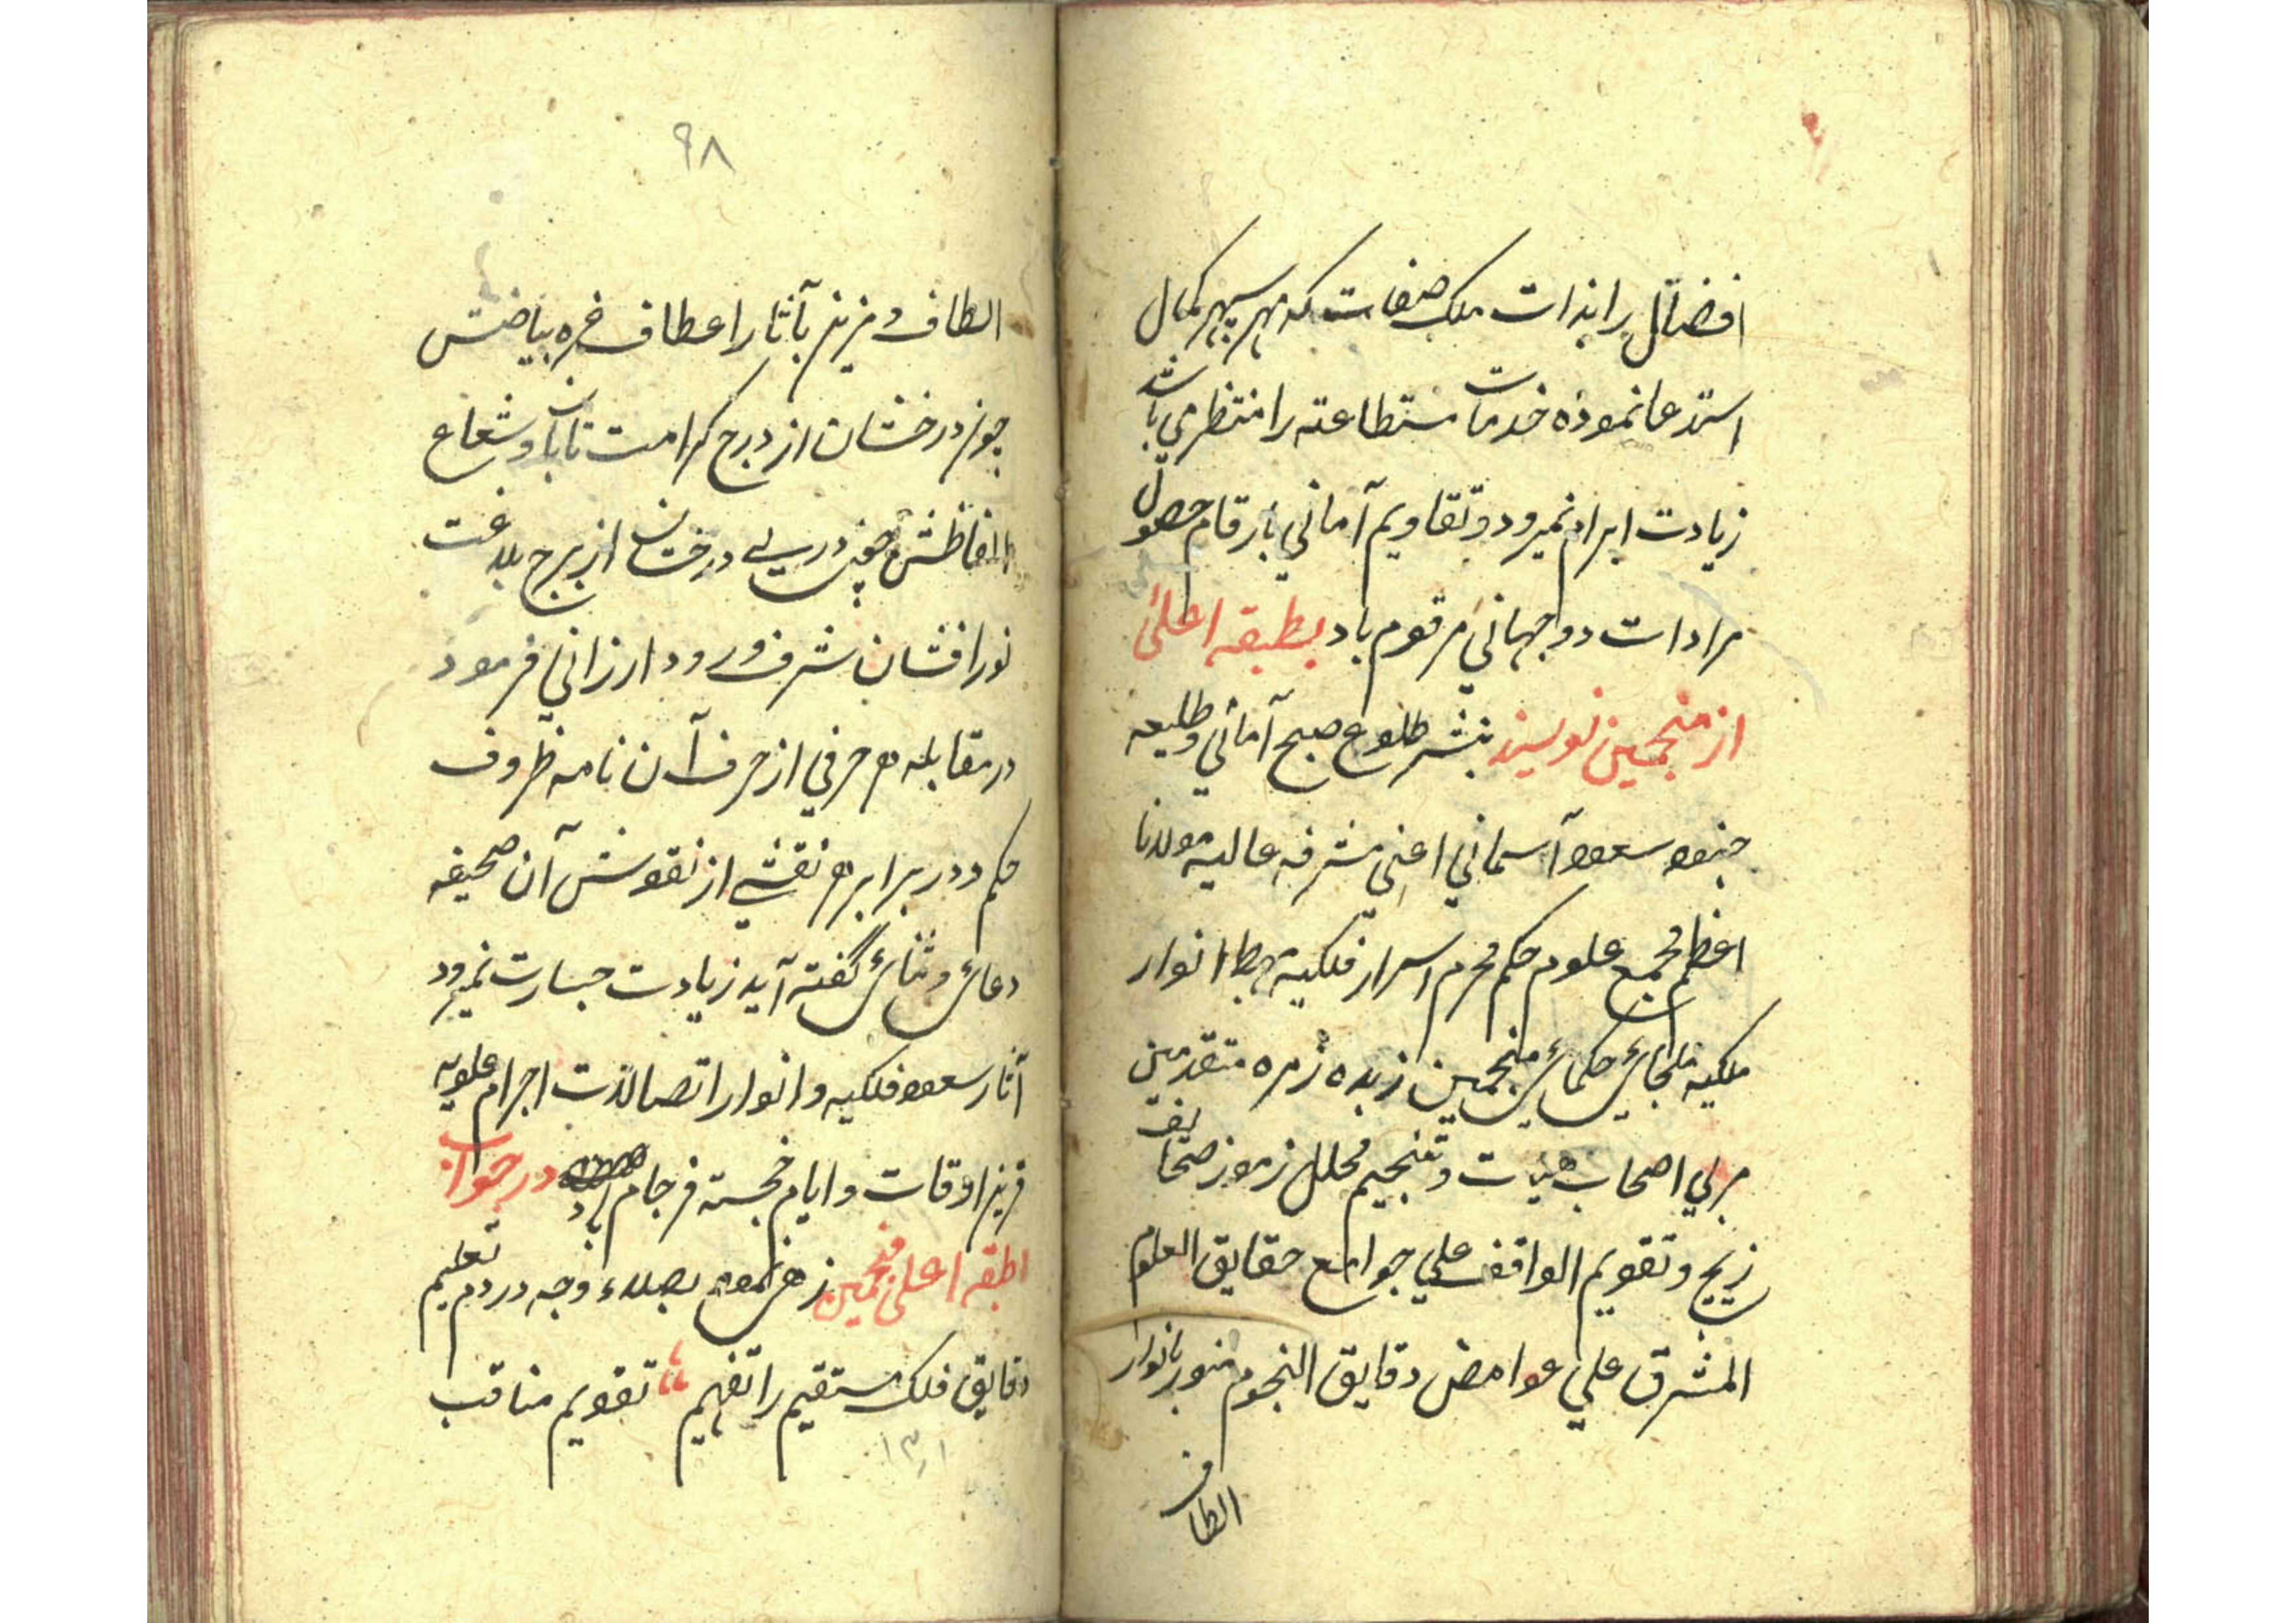 افضال بر ابذات ملک صفات که مهر سپهر کمال
استدعا نموده خدمات مستطاعته را منتظر می باشد
زیادت ابرام نمیرود و تقاویم آمانی بارقام حصول
مرادات دو جهانی مرقوم باد بطبقه اعلی
از منجمین نویسند بنشر طلوع صبح آمانی و طلیعه
جنود سعود آسمانی اعنی مشرفه عالیه مولانا
اعظم مجمع علوم حکم محرم اسرار فلکیه مهبط انوار
ملکیه ملجای حکمای منجمین زبده زمره متقدمین
مربی اصحاب هیئت و تنجیم محلل رموز صحایف
زیج و تقویم الواقف علی جوامع حقایق العلوم
المشرق علی عوامض دقایق النجوم منور بانوار
الطاف
۹۸
الطاف و مزین بآثار اعطاف غره بیاضش
چون درخشان از درج کرامت تابان و شعاع
الفاظش چون دراری درخشان از برج بلاغت
نور افشان شرف ورود ارزانی فرمود
در مقابله هر حرفی از حرف آن نامه ظروف
حکم و در برابر هر نقشی از نقوش آن صحیفه
دعای و ثنای گفته آید زیادت جسارت نمیرود
آثار سعود فلکیه و انوار اتصالات اجرام علویه
قرین اوقات و ایام خجسته فرجام باد در جواب
اطبقه اعلی منجمین زهی بصلاء وجه در دم تعلیم
دقایق فلک مستقیم را تفهیم تقویم مناقب